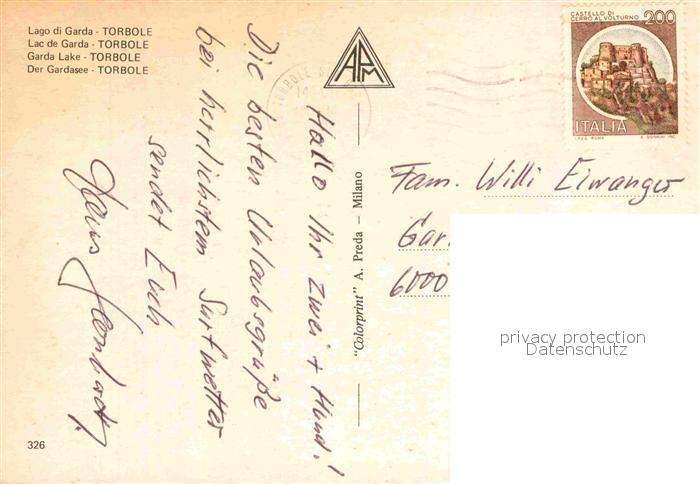 Lago di Garda - TORBOLE
Lac de Garda - TORBOLE
Garda Lake - TORBOLE
Der Gardasee - TORBOLE
APM
TORBOLE
CASTELLO DI
CERRO AL VOLTURNO
200
ITALIA
I.P.Z.S. ROMA
Hallo Ihr zwei + Hund!
Die besten Urlaubsgrüße
bei herrlichstem Surfwetter
sendet Euch
Hans
"Colorprint" A. Preda - Milano
Fam. Willi Eiwanger
Gar
6000
privacy protection
Datenschutz
326